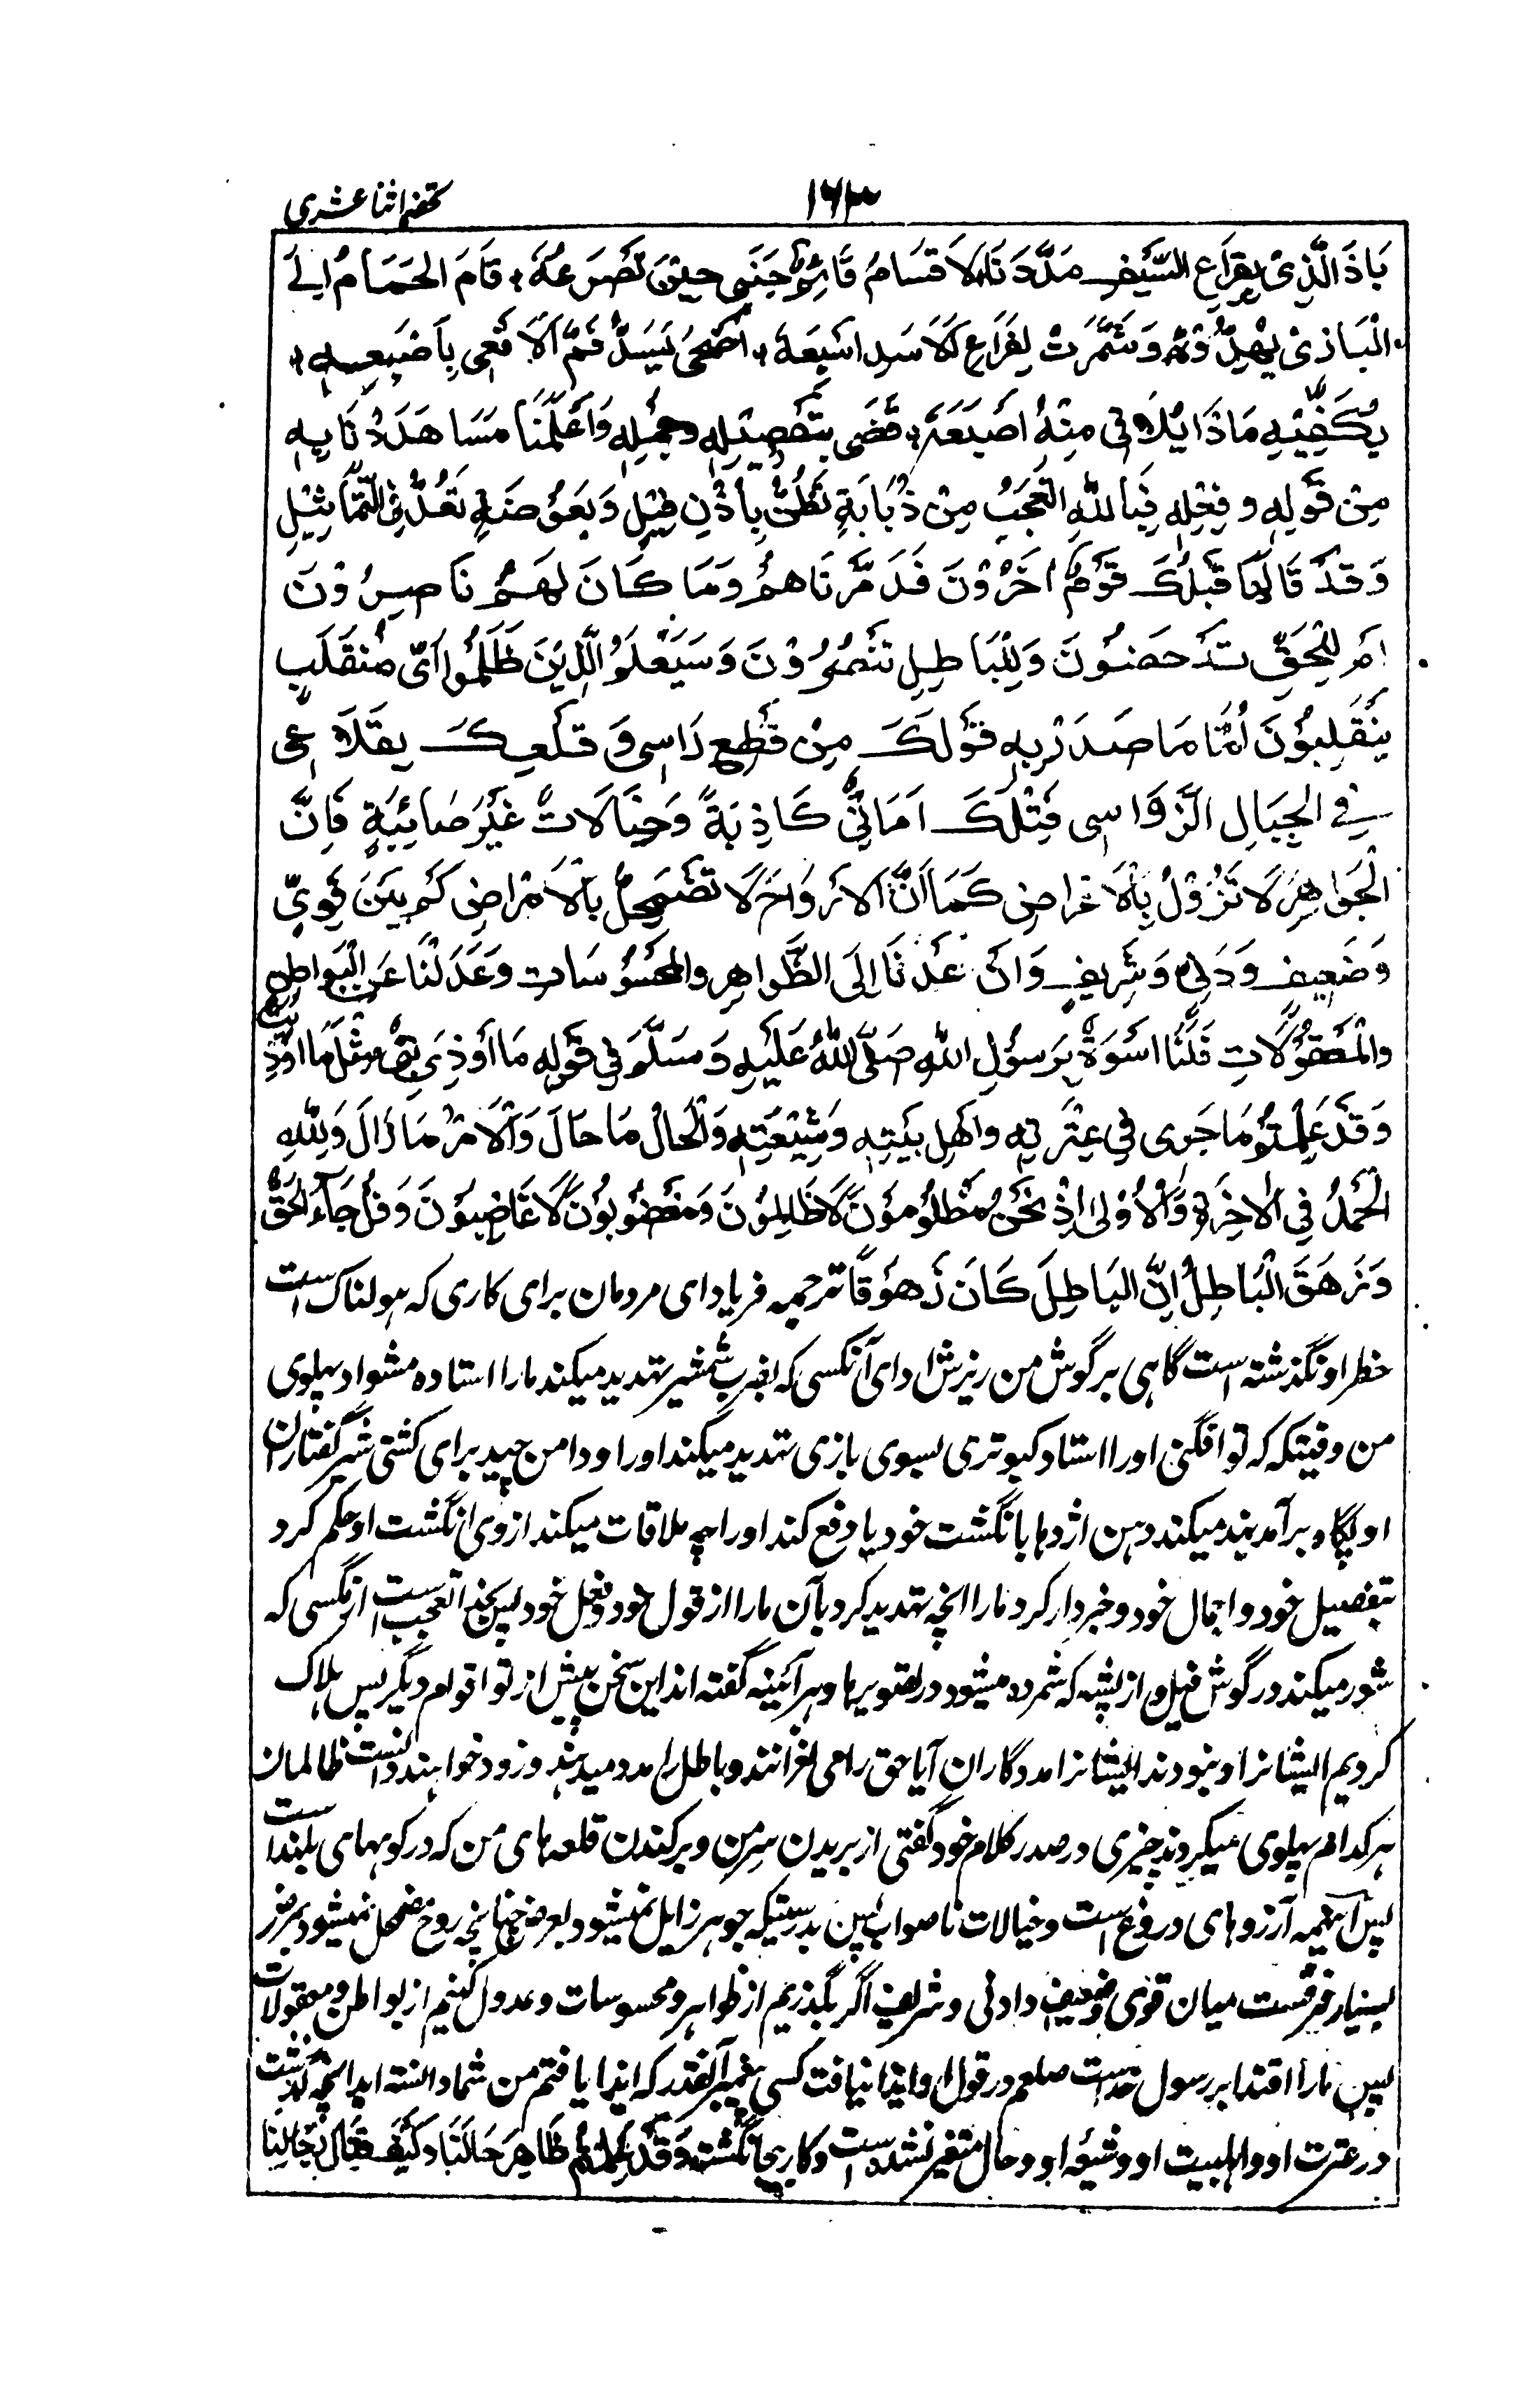 تحفهٔ اثنا عشری
۱۶۳
يَا ذَا الَّذِیْ بِقِرَاعِ السَّيْفِ هَدَّدَنَا لَا قَامَ قَائِمُ جَنْبِی حِيْنَ تَصْرَعُهُ ؛ قَامَ الحَمَامُ اِلَی
الْبَازِیْ يُهَدِّدُهُ وَشَمَّرَتْ لِقِرَاعِ الْاُسْدِ اَضْبُعُهُ ؛ اَضْحٰی يَسُدُّ فَمَ الْاَفْعٰی بِاِصْبَعِهِ ؛
يَكْفِيْهِ مَاذَا يُلَاقِی مِنْهُ اِصْبَعُهُ ؛ قَضٰی بِتَفْصِيْلِهٖ وَجُمَلِهٖ وَاَعْلَمَنَا مَا هَدَّدَنَا بِهٖ
مِنْ قَوْلِهٖ وَفِعْلِهٖ فَيَا لَلّٰهِ الْعَجَبُ مِنْ ذُبَابَةٍ تَطِنُّ بِاُذْنِ فِيْلٍ وَبَعُوْضَةٍ تُعَدُّ فِی التَّمَاثِيْلِ
وَقَدْ قَالَهَا قَبْلَكَ قَوْمٌ اٰخَرُوْنَ فَدَمَّرْنَاهُمْ وَمَا كَانَ لَهُمْ نَاصِرُوْنَ
اَمْ لِلْحَقِّ تَدْحَضُوْنَ وَلِلْبَاطِلِ تَنْصُرُوْنَ وَسَيَعْلَمُ الَّذِيْنَ ظَلَمُوْا اَیَّ مُنْقَلَبٍ
يَنْقَلِبُوْنَ اَمَّا مَا صَدَرَ بِهٖ قَوْلُكَ مِنْ قَطْعِ رَاسِی وَقَلْعِكَ بِقَلَاعِی
فِی الْجِبَالِ الرَّوَاسِی فَتِلْكَ اَمَانِیُّ كَاذِبَةٌ وَخَيَالَاتٌ غَيْرُ صَائِبَةٍ فَاِنَّ
الْجَوَاهِرَ لَا تَزُوْلُ بِالْاَعْرَاضِ كَمَا اَنَّ الْاَرْوَاحَ لَا تَضْمَحِلُّ بِالْاَمْرَاضِ كَمْ بَيْنَ قَوِیٍّ
وَضَعِيْفٍ وَدَنِیٍّ وَشَرِيْفٍ وَاِنْ عُدْنَا اِلَی الظَّوَاهِرِ وَالْمَحْسُوْسَاتِ وَعَدَلْنَا عَنِ الْبَوَاطِنِ
وَالْمَعْقُوْلَاتِ فَلَنَا اُسْوَةٌ بِرَسُوْلِ اللّٰهِ صَلَّی اللّٰهُ عَلَيْهِ وَسَلَّمَ فِی قَوْلِهٖ مَا اُوْذِیَ نَبِیٌّ مِثْلَ مَا اُوْذِيْتُ
وَقَدْ عَلِمْتُمْ مَا جَرٰی فِی عِتْرَتِهٖ وَاَهْلِ بَيْتِهٖ وَشِيْعَتِهٖ وَالْحَالُ مَا حَالَ وَالْاَمْرُ مَا زَالَ وَلِلّٰهِ
الْحَمْدُ فِی الْاٰخِرَةِ وَالْاُوْلٰی اِذْ نَحْنُ مَظْلُوْمُوْنَ لَا ظَالِمُوْنَ وَمَغْضُوْبُوْنَ لَا غَاضِبُوْنَ وَقُلْ جَاۤءَ الْحَقُّ
وَزَهَقَ الْبَاطِلُ اِنَّ الْبَاطِلَ كَانَ زَهُوْقًا ترجمه فریاد ای مردمان برای کاری که هولناک است
خطر او نگذشته است گاهی بر گوش من ریزش او ای آنکسی که بضرب شمشیر تهدید میکند ما را استاده مشواد پهلوی
من وقتیکه که تو افگنی او را استاد کبوتری بسوی بازی تهدید میکند او را و دامن چید برای کشتی شیر گفتاران
او پگاه برآمد بند میکند دهن اژدها بانگشت خود یا دفع کند او را چه ملاقات میکند از وی انگشت او حکم کرد
بتفصیل خود و اجمال خود و خبردار کرد ما را انچه تهدید کرد بآن ما را از قول خود و فعل خود پس بخدا تعجب است از مگسی که
شور میکند در گوش فیل و از پشه که شمرده میشود در تصویرها و هر آئینه گفته اند این سخن پیش از تو اقوام دیگر پس هلاک
کردیم ایشانرا و نبودند ایشانرا مددگاران آیا حق را می لغزانند و باطل را مدد میدهند و زود خواهند دانست ظالمان
هر کدام پهلوی میگردند چیزی در صدر کلام خود گفتی از بریدن سر من و برکندن قلعه های من که در کوههای بلند است
پس اینهمه آرزوهای دروغ است و خیالات ناصواب پس بدرستیکه جوهر زایل نمیشود بعرض چنانچه روح مضمحل نمیشود بمرض
بسیار فرقست میان قوی و ضعیف و ادنی و شریف اگر بگذریم از ظواهر و محسوسات و عدول کنیم از بواطن و معقولات
پس ما را اقتدا بر رسول خداست صلعم در قول او ایذا نیافت کسی پیغمبر آنقدر که ایذا یافتم من شما دانسته اید انچه گذشت
در عترت او و اهلبیت او و شیعه او و حال متغیر نشده است و کار بجا نگشته وَقَدْ عَلِمْتُمْ ظَاهِرَ حَالِنَا وَكَيْفَ